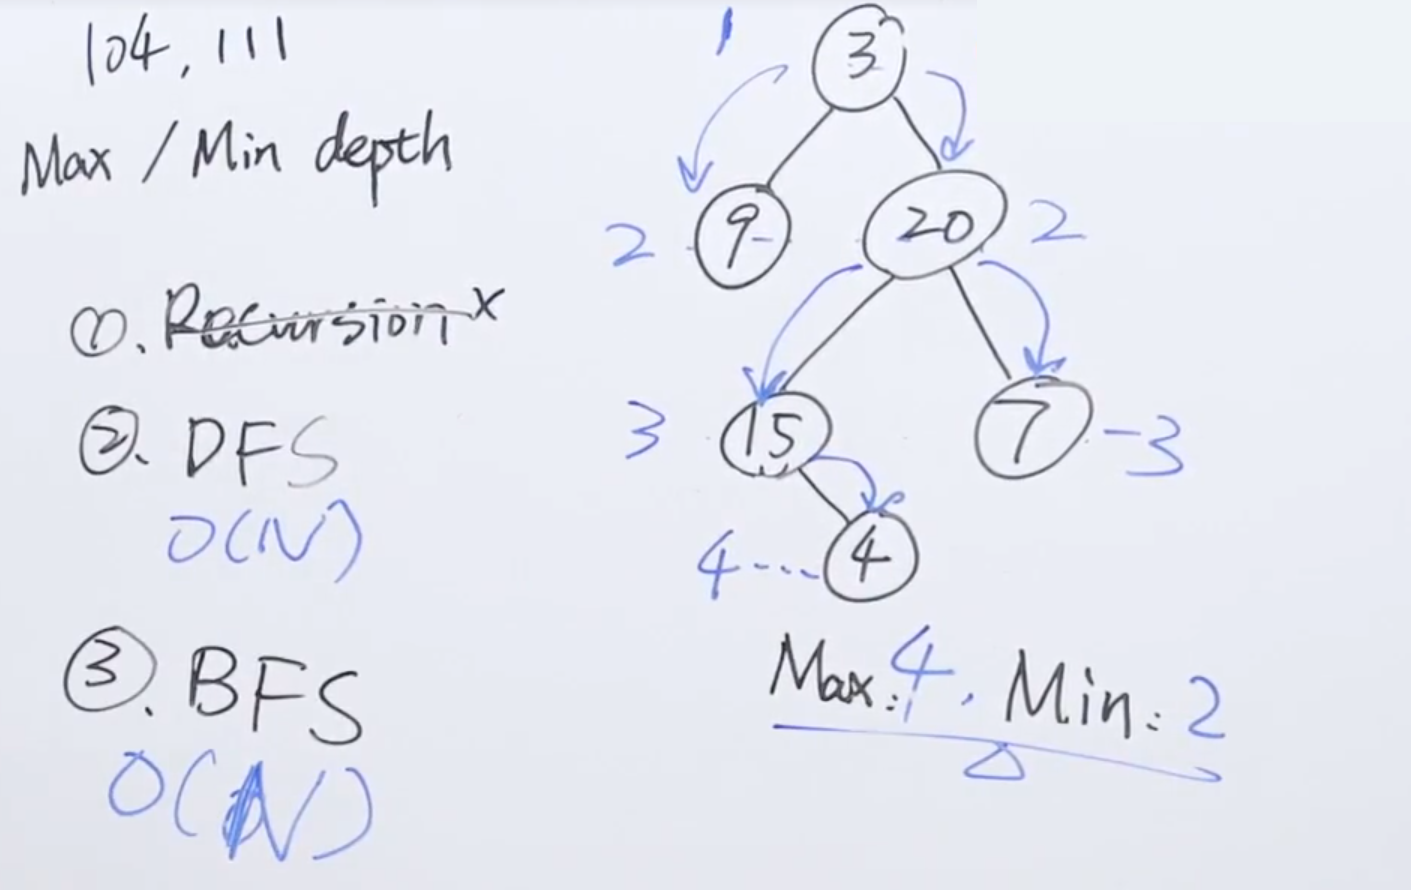 104, 111
Max / Min depth
①. Recursion x
②. DFS
O(N)
③. BFS
O(N)
1
3
2
9
20
2
3
15
7
-3
4....
4
Max: 4, Min: 2